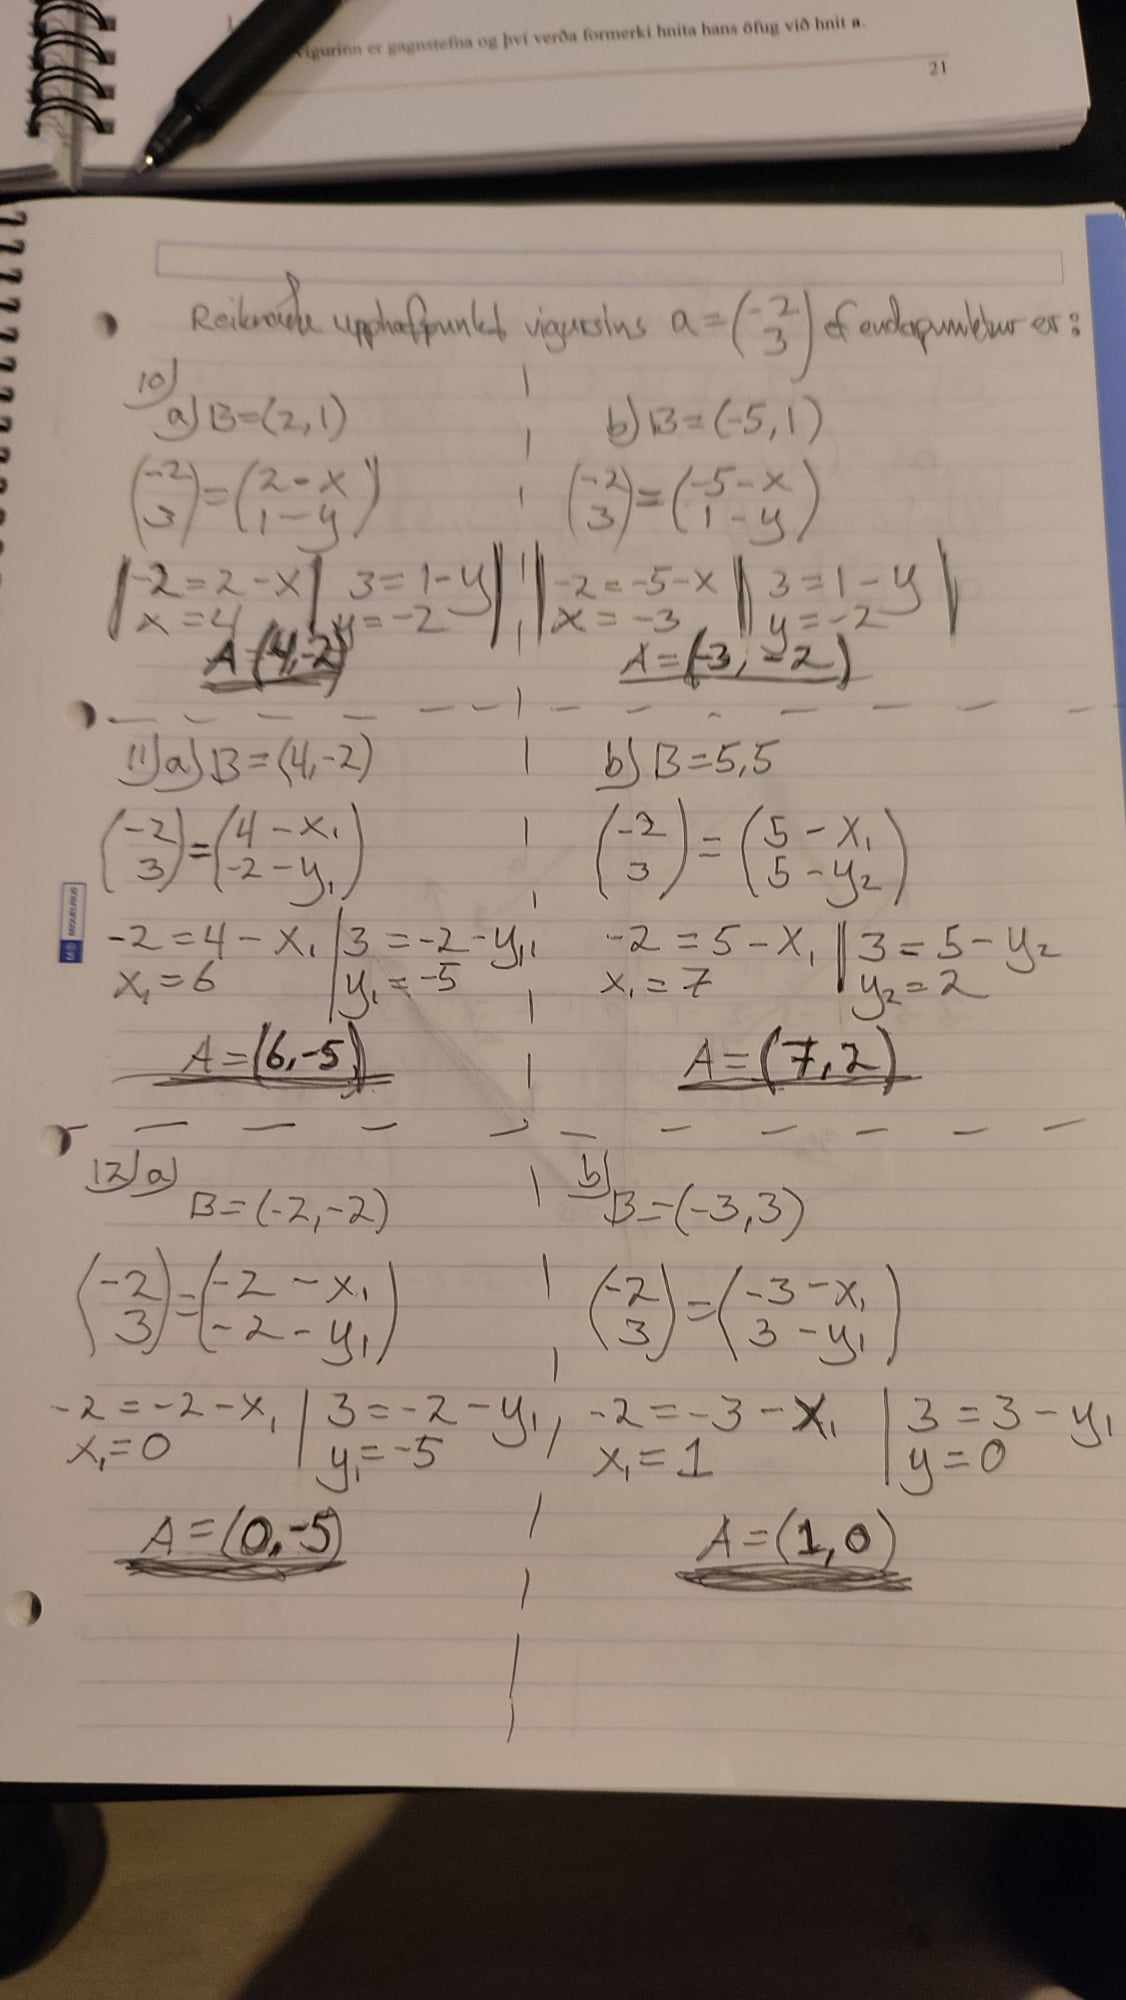 vigurinn er gagnstefna og því verða formerki hnita hans öfug við hnit a.
21
Reiknaðu upphafpunkt vigursins a = (-2 3) ef endapunktur er:
10)
a) B = (2, 1)
(-2 3) = (2 - x 1 - y)
-2 = 2 - x | 3 = 1 - y
x = 4 | y = -2
A = (4, -2)
b) B = (-5, 1)
(-2 3) = (-5 - x 1 - y)
-2 = -5 - x || 3 = 1 - y
x = -3 || y = -2
A = (-3, -2)
11) a) B = (4, -2)
(-2 3) = (4 - x₁ -2 - y₁)
-2 = 4 - x₁ | 3 = -2 - y₁
x₁ = 6 | y₁ = -5
A = (6, -5)
b) B = 5,5
(-2 3) = (5 - x₁ 5 - y₂)
-2 = 5 - x₁ || 3 = 5 - y₂
x₁ = 7 || y₂ = 2
A = (7, 2)
12) a)
B = (-2, -2)
(-2 3) = (-2 - x₁ -2 - y₁)
-2 = -2 - x₁ | 3 = -2 - y₁
x₁ = 0 | y₁ = -5
A = (0, -5)
b)
B = (-3, 3)
(-2 3) = (-3 - x₁ 3 - y₁)
-2 = -3 - x₁ | 3 = 3 - y₁
x₁ = 1 | y = 0
A = (1, 0)